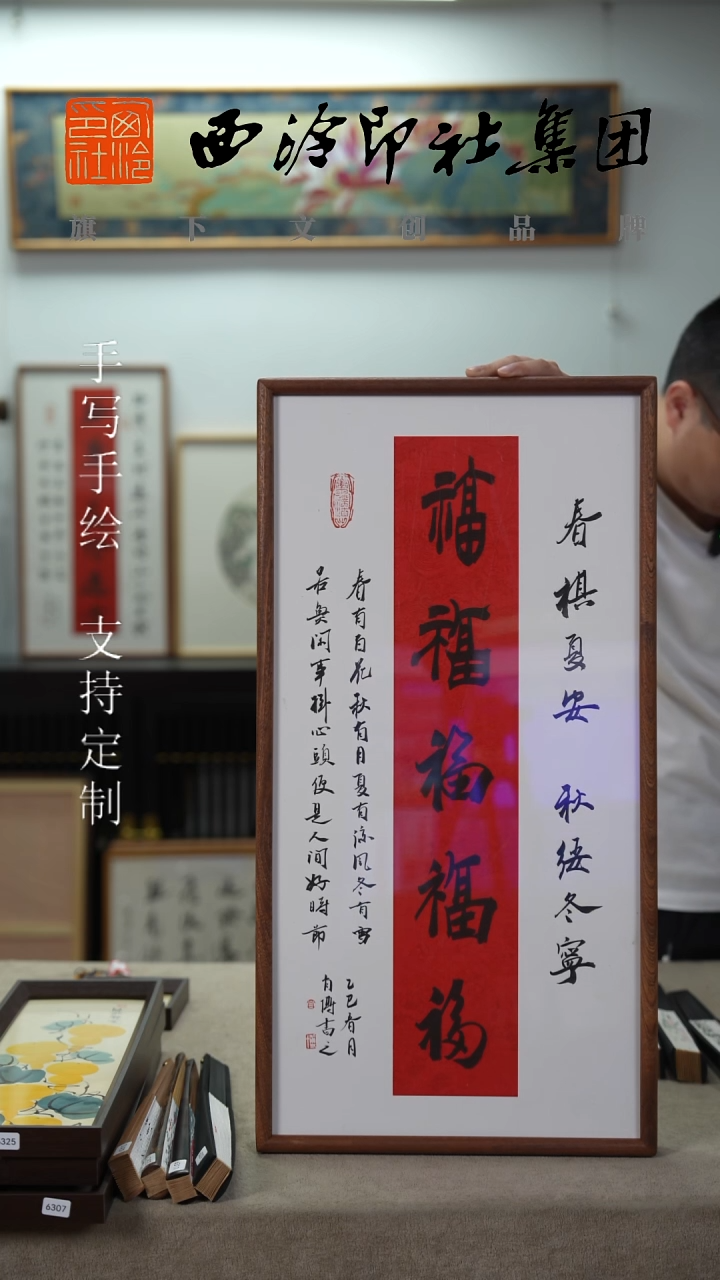 西泠印社
西泠印社集团
旗下文创品牌
手写手绘 支持定制
春祺夏安 秋绥冬宁
福福福福福
春有百花秋有月夏有凉风冬有雪
若無闲事掛心頭便是人间好時節
乙巳春月
325
6307